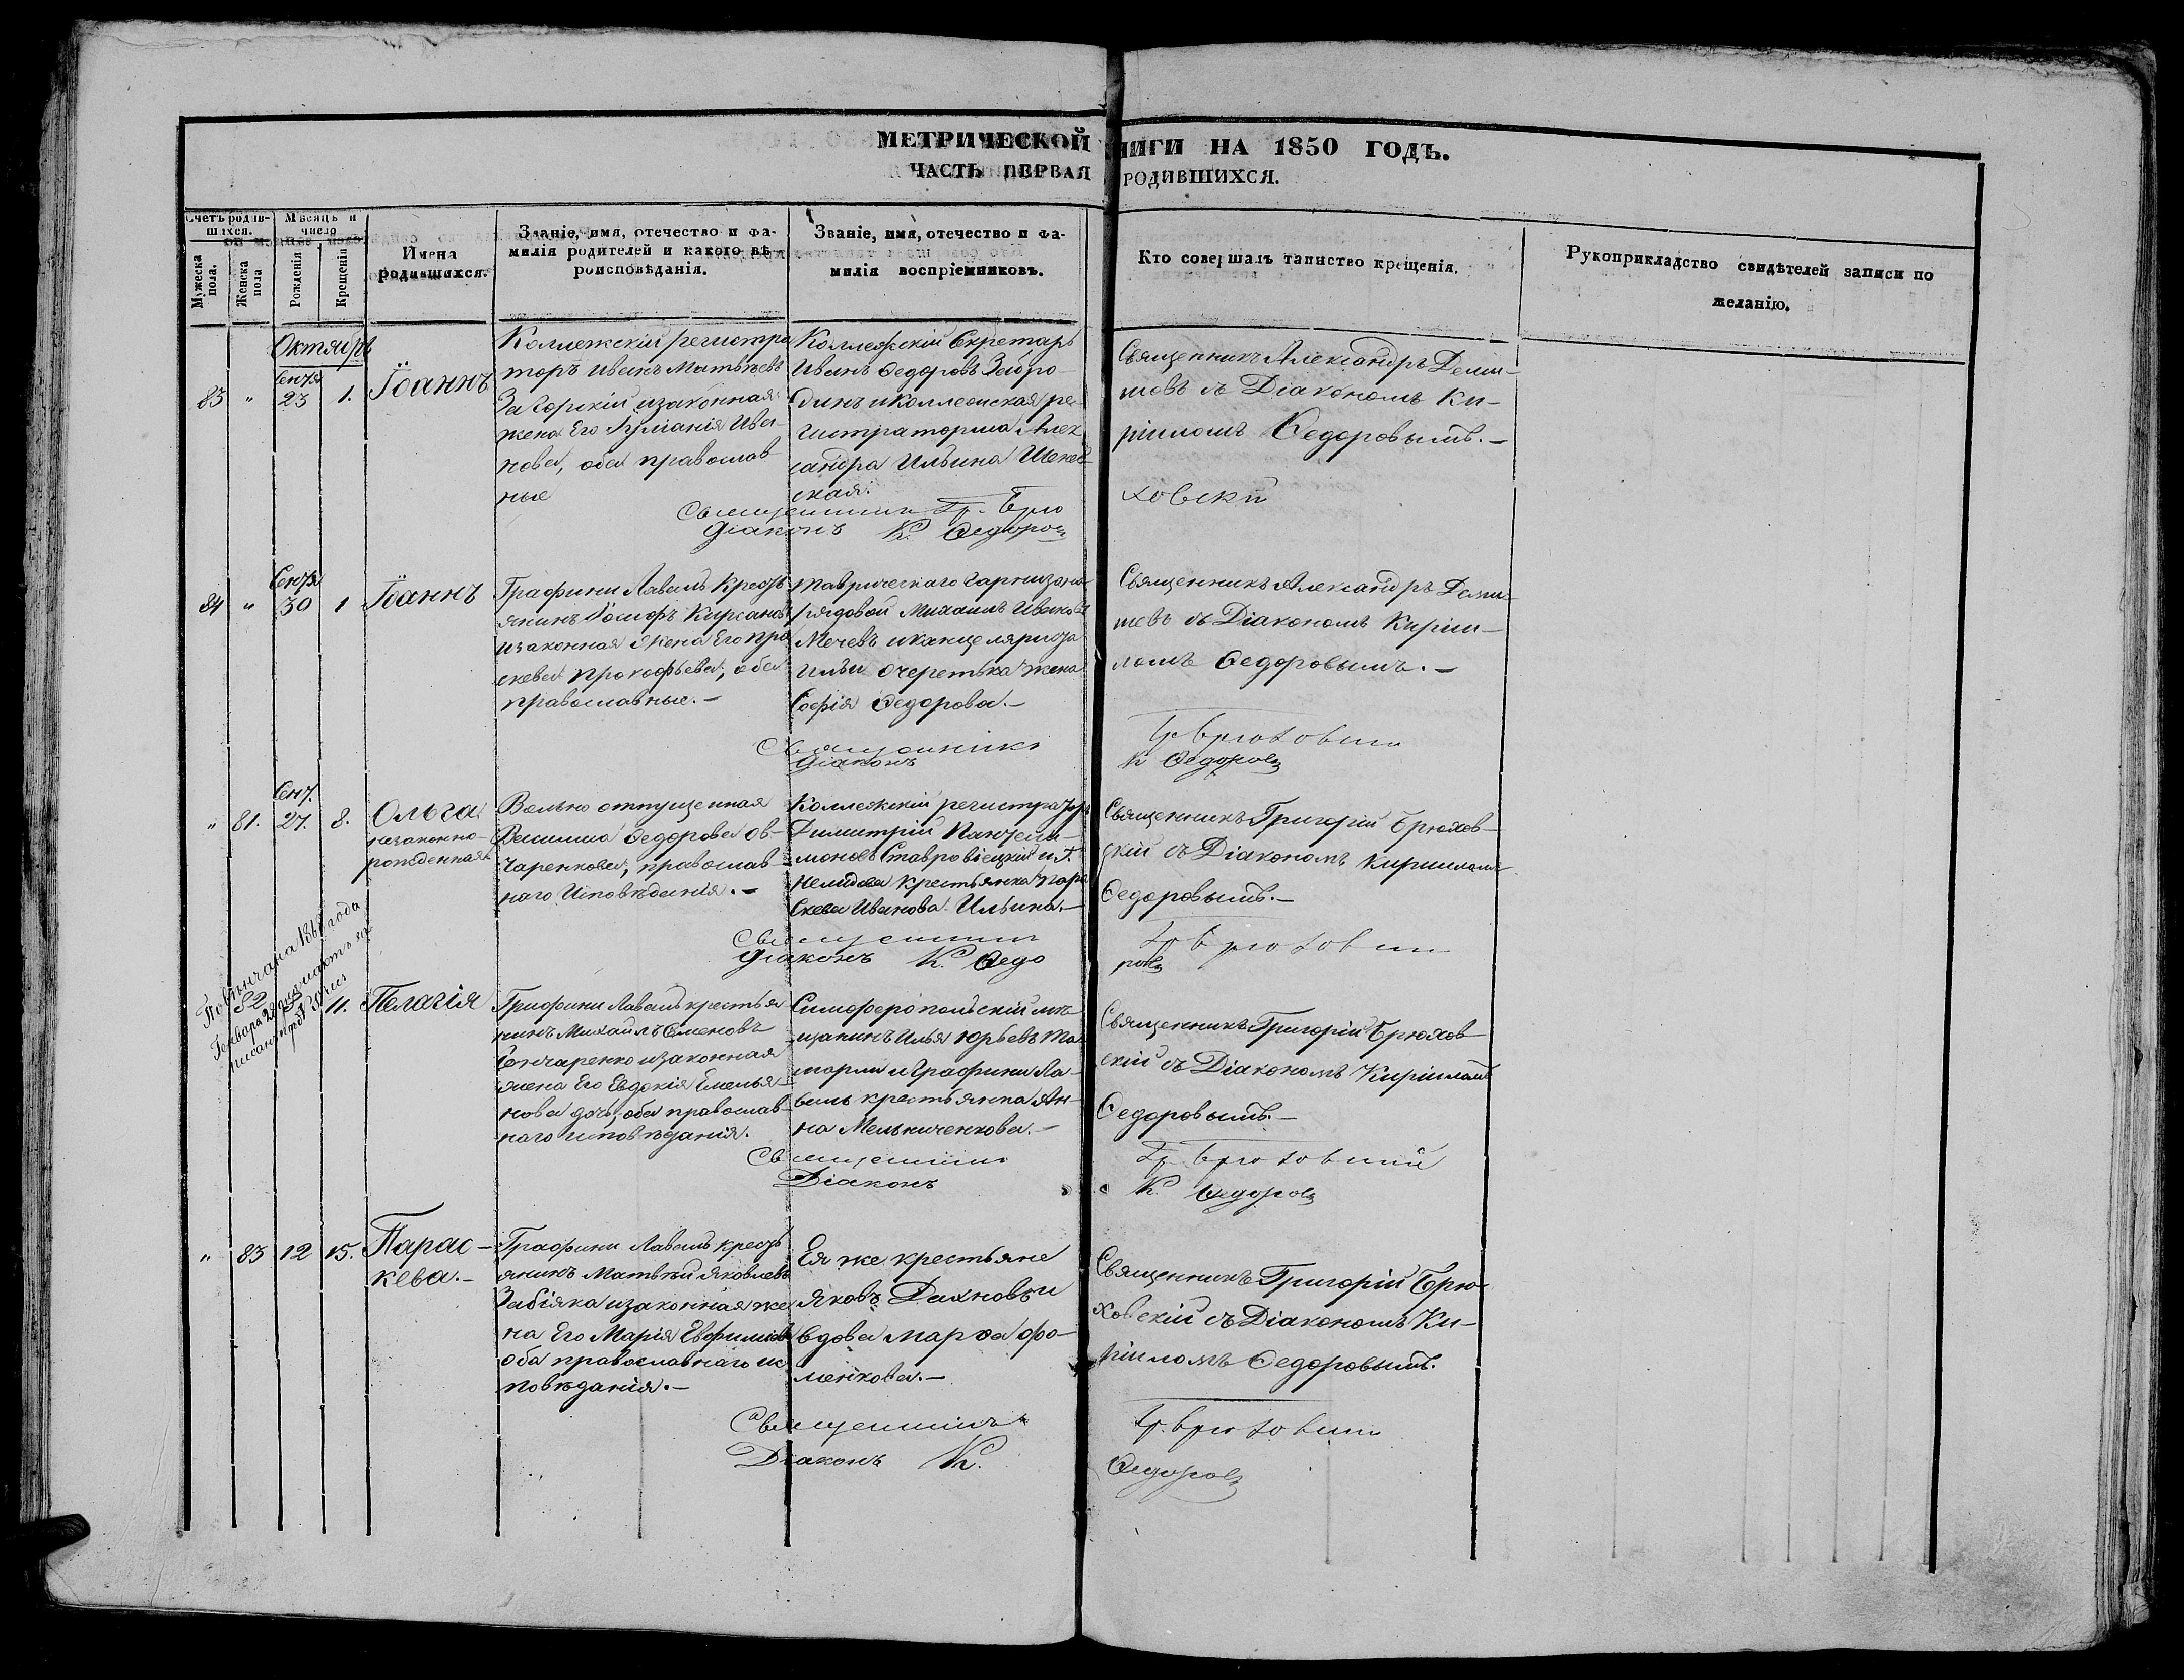 МЕТРИЧЕСКОЙ НИГИ НА 1850 ГОДЪ.
ЧАСТЬ ПЕРВАЯ РОДИВШИХСЯ.
Счетъ родив-
шихся.
Мѣсяцъ и
число
Мужеска
пола.
Женска
пола
Рожденія
Крещенія
Имена
родившихся.
Званіе, имя, отечество и фа-
милія родителей и какого вѣ-
роисповѣданія.
Званіе, имя, отечество и фа-
милія воспріемниковъ.
Кто совершалъ таинство крещенія.
Рукоприкладство свидѣтелей записи по
желанію.
Октябрь
83 " 23 1. Іоаннъ
Колежскій регистра
торъ Иванъ Матвѣевъ
Загорскій изаконная
жена Его Іуліанія Ива-
нова, оба православ
ные
Коллежскій Секретарь
Иванъ Ѳедоровъ Забро-
динъ и Коллежская ре-
гистраторша Алек
сандра Ильина
ская.
Священникъ Александръ Деми-
шевъ съ Діакономъ Ки-
рилломъ Ѳедоровымъ.-
Священникъ Гр. Брю
ховскій
Діаконъ К. Ѳедоровъ
84 " 30 1 Іоаннъ
Графини Лаваль Кресть
янинъ Іосифъ Кирсановъ
изаконная Жена Его Пра
скева Прокофьева, оба
православные.-
Таврическаго гарнизона
рядовой Михаилъ Ивановъ
Мечевъ и канцеляриста
Ильи Очеретька жена
Софія Ѳедорова.-
Священникъ Александръ Деми-
шевъ съ Діакономъ Кирил-
ломъ Ѳедоровымъ.-
Священникъ Гр Брюховскій
Діаконъ К Ѳедоровъ
" 81. 27. 8. Ольга
незаконно-
рожденная
Вольно отпущенная
Василиса Ѳедорова Ов-
чаренкова, православ-
наго Исповѣданія.-
Коллежскій регистраторъ
Димитрій Пантели-
моновъ Ставровіецкій и Г.
Нелидова крестьянка Пара
скева Иванова Ильина.-
Священникъ Григорій Брюхов-
скій съ Діакономъ Кирилломъ
Ѳедоровымъ.-
Священникъ Гр Брюховскій
Діаконъ К. Ѳедоровъ
Повѣнчана года
Генваря
82 11. Пелагія
Графини Лаваль крестья
нинъ Михаилъ Семеновъ
Гончаренко изаконная
жена Его Евдокія Емелья-
нова дочь, оба православ-
наго исповѣданія.
Симферопольскій мѣ-
щанинъ Илья Юрьевъ
и Графини Ла-
валь крестьянка Ан-
на Мельниченкова.-
Священникъ Григорій Брюхов
скій съ Діакономъ Кирилломъ
Ѳедоровымъ.-
Священникъ Гр. Брюховскій
Діаконъ К. Ѳедоровъ
" 83 12 15. Парас-
кева.-
Графини Лаваль кресть
янинъ Матвѣй Яковлевъ
Забіяка изаконная же
на Его Марія Евфимова
оба православнаго ис
повѣданія.-
Ея же крестьяне
Яковъ Дахновъ и
вдова Марѳа Фо-
менкова.-
Священникъ Григорій Брю-
ховскій съ Діакономъ Ки-
рилломъ Ѳедоровымъ.
Священникъ Гр. Брюховскій
Діаконъ К. Ѳедоровъ